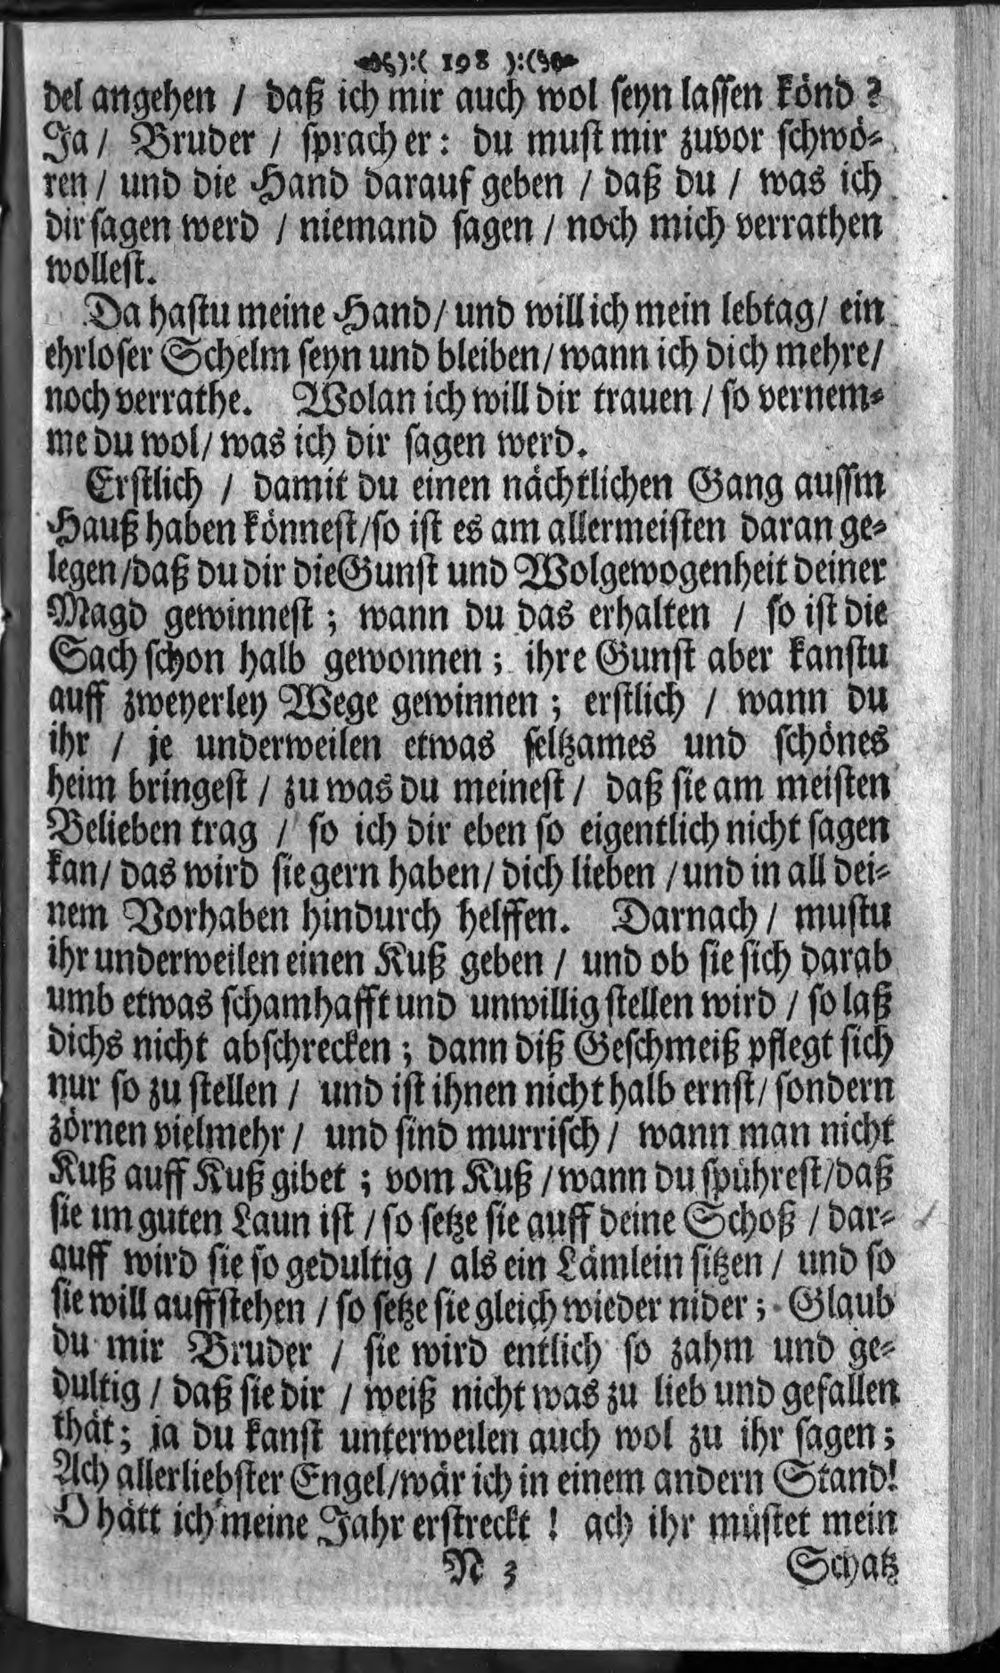 ):( 198 ):(
del angehen / daß ich mir auch wol seyn lassen könd ?
Ja / Bruder / sprach er : du must mir zuvor schwö-
ren / und die Hand darauf geben / daß du / was ich
dir sagen werd / niemand sagen / noch mich verrathen
wollest.
Da hastu meine Hand / und will ich mein lebtag / ein
ehrloser Schelm seyn und bleiben / wann ich dich mehre /
noch verrathe. Wolan ich will dir trauen / so vernem-
me du wol / was ich dir sagen werd.
Erstlich / damit du einen nächtlichen Gang aussm
Hauß haben könnest / so ist es am allermeisten daran ge-
legen / daß du dir die Gunst und Wolgewogenheit deiner
Magd gewinnest ; wann du das erhalten / so ist die
Sach schon halb gewonnen ; ihre Gunst aber kanstu
auff zweyerley Wege gewinnen ; erstlich / wann du
ihr / je underweilen etwas seltzames und schönes
heim bringest / zu was du meinest / daß sie am meisten
Belieben trag / so ich dir eben so eigentlich nicht sagen
kan / das wird sie gern haben / dich lieben / und in all dei-
nem Vorhaben hindurch helffen. Darnach / mustu
ihr underweilen einen Kuß geben / und ob sie sich darab
umb etwas schamhafft und unwillig stellen wird / so laß
dichs nicht abschrecken ; dann diß Geschmeiß pflegt sich
nur so zu stellen / und ist ihnen nicht halb ernst / sondern
zörnen vielmehr / und sind murrisch / wann man nicht
Kuß auff Kuß gibet ; vom Kuß / wann du spührest / daß
sie im guten Laun ist / so setze sie auff deine Schoß / dar-
auff wird sie so gedultig / als ein Lämlein sitzen / und so
sie will auffstehen / so setze sie gleich wieder nider ; Glaub
du mir Bruder / sie wird entlich so zahm und ge-
dultig / daß sie dir / weiß nicht was zu lieb und gefallen
thät ; ja du kanst unterweilen auch wol zu ihr sagen ;
Ach allerliebster Engel / wär ich in einem andern Stand !
O hätt ich meine Jahr erstreckt ! ach ihr müstet mein
N 3 Schatz